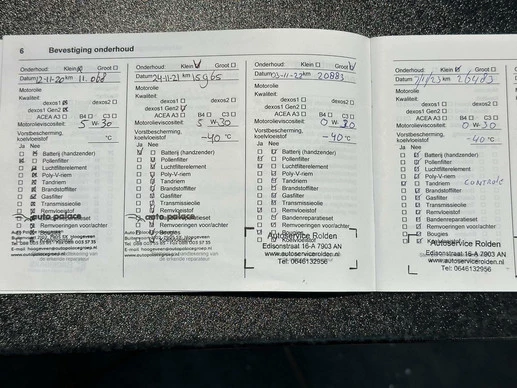 6 Bevestiging onderhoud
Onderhoud: Klein Groot
Datum 12-11-20 km 11.068
Motorolie
Kwaliteit:
dexos1 dexos2
dexos1 Gen2
ACEA A3 B4 C3
Motorolieviscositeit: 5 W-30
Vorstbescherming,
koelvloeistof °C
Ja Nee
Batterij (handzender)
Pollenfilter
Luchtfilterelement
Poly-V-riem
Tandriem
Brandstoffilter
Gasfilter
Transmissieolie
Remvloeistof
auto palace
Onderhoud: Klein Groot
Datum 24-11-21 km 15965
Motorolie
Kwaliteit:
dexos1 dexos2
dexos1 Gen2
ACEA A3 B4 C3
Motorolieviscositeit: 5 W-30
Vorstbescherming,
koelvloeistof -40 °C
Ja Nee
Batterij (handzender)
Pollenfilter
Luchtfilterelement
Poly-V-riem
Tandriem
Brandstoffilter
Gasfilter
Transmissieolie
Remvloeistof
auto palace
Onderhoud: Klein Groot
Datum 03-11-22 km 20883
Motorolie
Kwaliteit:
dexos1 dexos2
dexos1 Gen2
ACEA A3 B4 C3
Motorolieviscositeit: 0 W-30
Vorstbescherming,
koelvloeistof -40 °C
Ja Nee
Batterij (handzender)
Pollenfilter
Luchtfilterelement
Poly-V-riem
Tandriem
Brandstoffilter
Gasfilter
Transmissieolie
Remvloeistof
Bandenreparatieset
Remvoeringen voor/achter
Bougies
Koelvloeistof
Autoservice Rolden
Edisonstraat 16-A 7903 AN
www.autoservicerolden.nl
Tel: 0646132956
Onderhoud: Klein Groot
km 26483
Motorolie
Kwaliteit:
dexos1 dexos2
dexos1 Gen2
ACEA A3 B4 C3
Motorolieviscositeit: 0 W-30
Vorstbescherming,
koelvloeistof -40 °C
Ja Nee
Batterij (handzender)
Pollenfilter
Luchtfilterelement
Poly-V-riem
Tandriem CONTROLE
Brandstoffilter
Gasfilter
Transmissieolie
Remvloeistof
Bandenreparatieset
Remvoeringen voor/achter
Bougies
Autoservice Rolden
Edisonstraat 16-A 7903 AN
www.autoservicerolden.nl
Tel: 0646132956